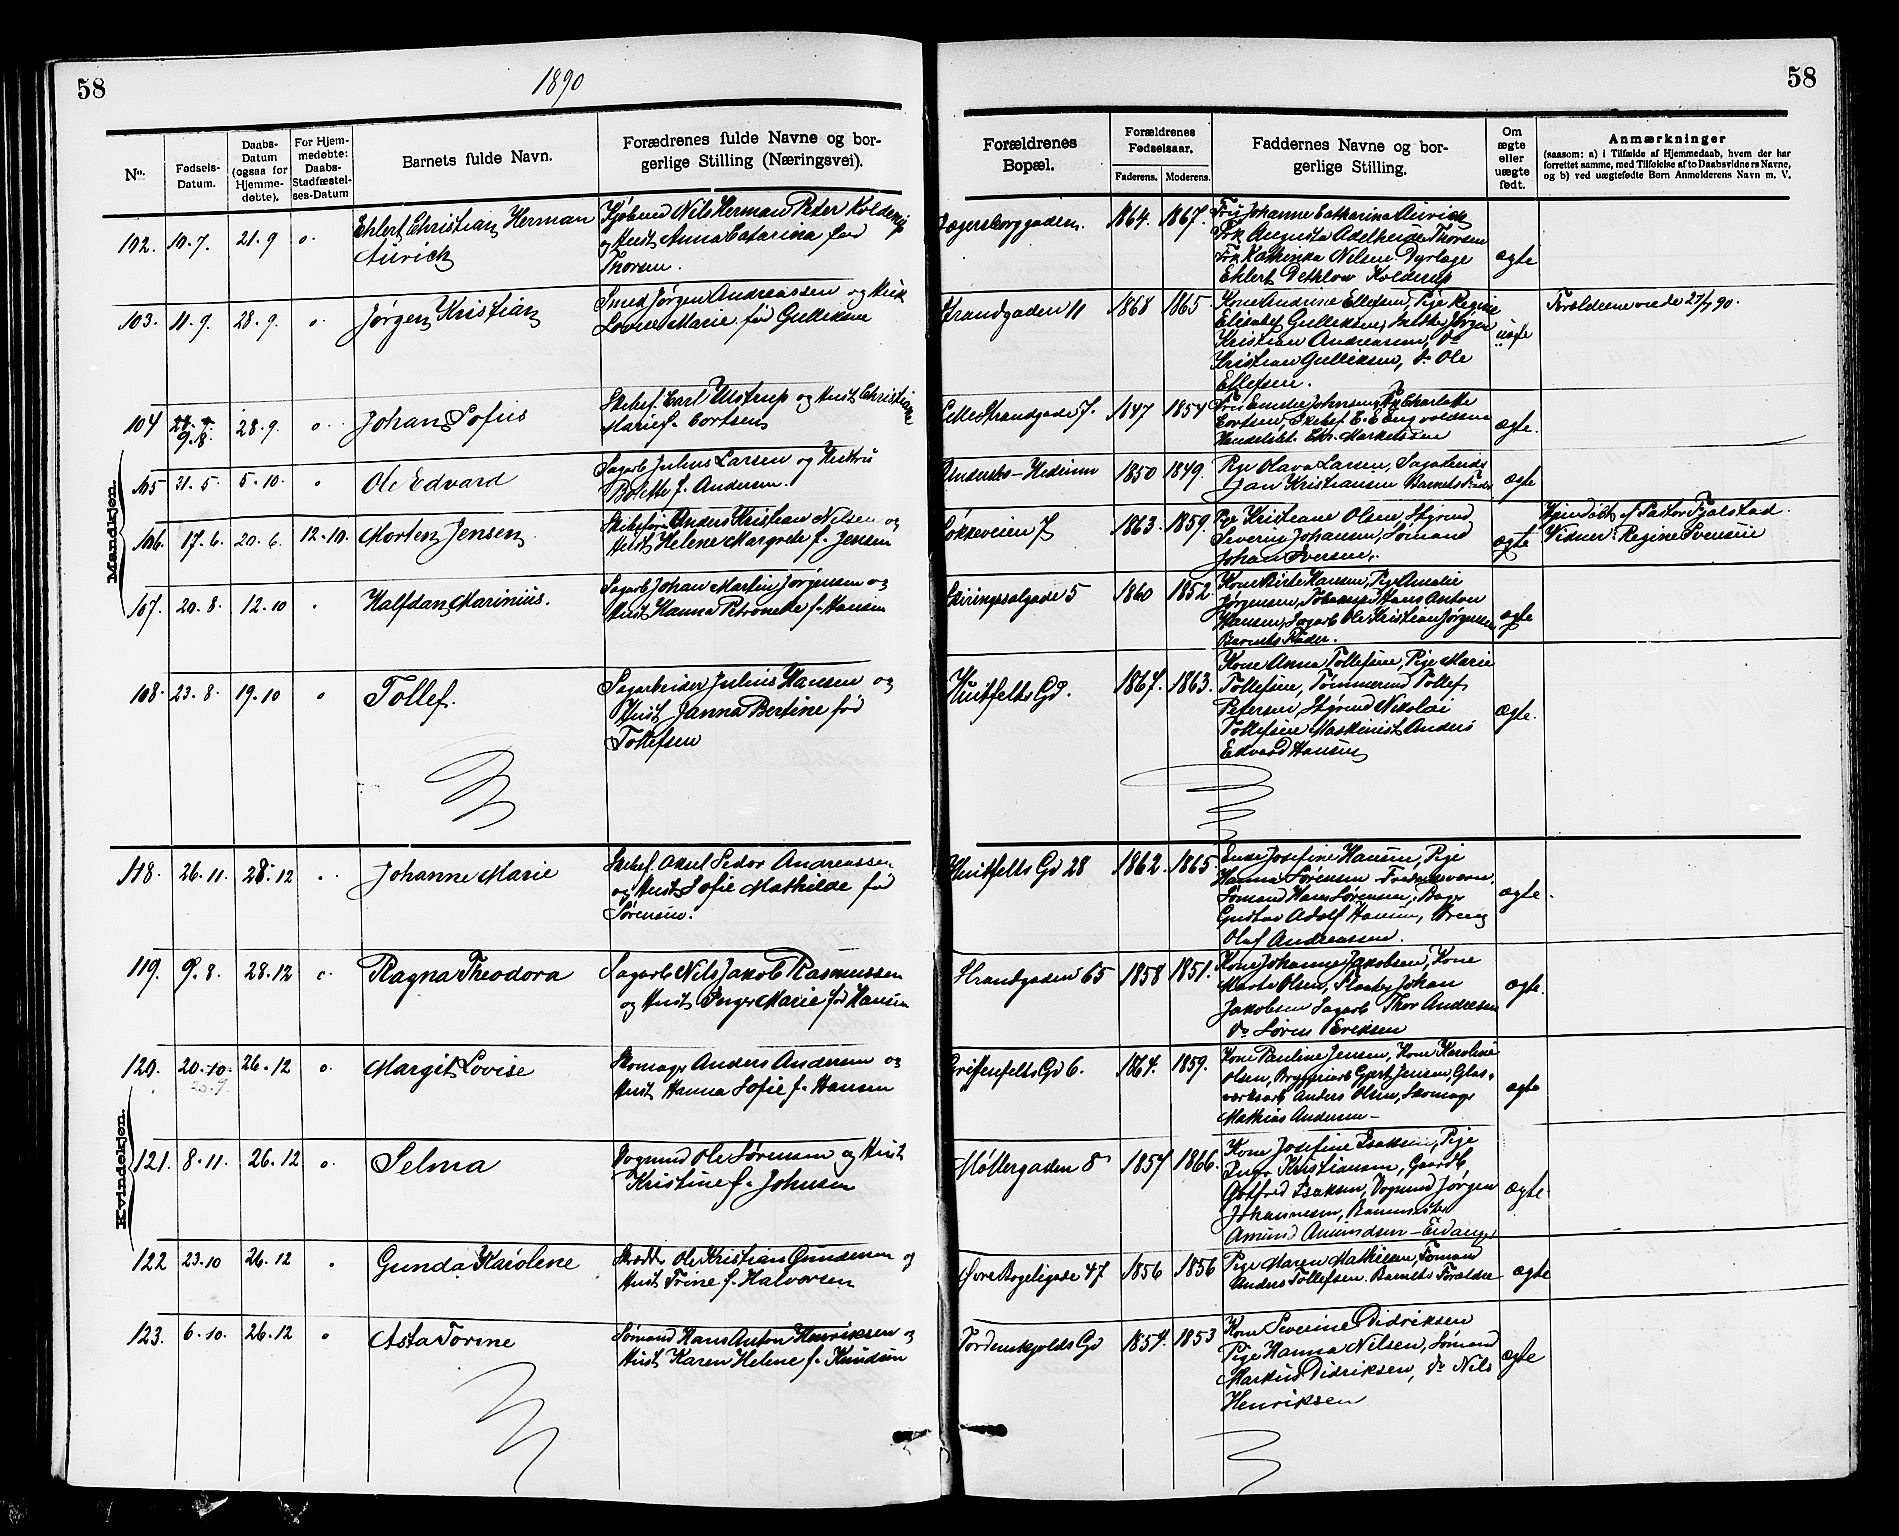 58
1890
58
No.
Fødsels-Datum.
Daabs-Datum (ogsaa for Hjemme-døbte).
For Hjem-medøbte: Daabs-Stadfæstel-ses-Datum
Barnets fulde Navn.
Forældrenes fulde Navne og bor-gerlige Stilling (Næringsvei).
Forældrenes Bopæl.
Forældrenes Fødselsaar.
Faderens. Moderens.
Faddernes Navne og bor-gerlige Stilling.
Om ægte eller uægte født.
Anmærkninger
(saasom: a) i Tilfælde af Hjemmedaab, hvem der har
forrettet samme, med Tilføielse af to Daabsvidners Navne,
og b) ved uægtefødte Børn Anmelderens Navn m. V.
Mandkjøn.
102. 10.7. 21.9 o. Ehlert Christian Herman
Aurich
Nils Herman Peter Kolderup
og Hust Anna Catarina født
Thorsen.
Jægersborggaden. 1864. 1867.
Fru Johanne Catharina Aurich
Frk Augusta Adelheide Thorsen
Frk Kathinka Nilsen Dyrlæge
Ehlert Dethlow Kolderup
ægte
103. 11.9. 28.9. o Jørgen Kristian
Smed Jørgen Andreassen og Hust
Lovise Marie født Gulliksen
Strandgaden 11 1868 1865
Kone Andrine Ellefsen, Pige Regine
Elisabet Gulliksen, Jørgen
Kristian Andreassen, do
Kristian Gulliksen, do Ole
Ellefsen.
uægte
Forældrene viede 90.
104 9.8. 28.9. o Johan Sofus
Skibsf. Carl Ulstrup og Hust Christiane
Marie f. Cortsen
Lille Strandgade 7. 1847 1854
Fru Emilie Johnsen, Frk Charlotte
Cortsen, Skibsf. E. Engvoldsen
Handelsbt. Chr. Markussen
ægte.
105 31.5. 5.10. o Ole Edvard
Sagarb Julius Larsen og Hustru
Bolette f. Andersen.
Hedrum 1850 1849.
Pige Olava Larsen, Sagarbeider
Jan Kristiansen Barnets Fader
ægte
106. 17.6. 20.6. 12.10. Morten Jensen
Skibsfører Anders Kristian Nilsen og
Hust Helene Margrete f. Jensen
7 1863. 1859.
Pige Kristiane Olsen Styrmd
Severin Johansen, Sømand
Johan Iversen.
ægte
Hjemdøbt af Pastor Fjalstad.
Vidner: Regine Svensen
107. 20.8. 12.10 o Halfdan Marinius.
Sagarb Johan Martin Jørgensen og
Hust Hanna Petronelle f. Hansen
Skiringssalgade 5 1860 1852
Kone Hansen, Pige Amalie
Jørgensen, Hans Anton
Hansen, Sagarb Ole Kristian Jørgensen
Barnets Fader.
ægte
108. 23.8. 19.10 o Tollef.
Sagarbeider Julius Hansen og
Hust Janna Bertine født
Tollefsen
Hvitfelts Gd. 1867. 1863.
Kone Anna Tollefsen, Pige Marie
Tollefsen, Tømmermd Tollef
Petersen, Styrmd Nikolai
Tollefsen Maskinist Anders
Edvard Hansen
ægte.
Kvindekjøn.
118. 26.11. 28.12 o Johanne Marie
Skibsf. Aksel Andreassen
og Hust Sofie Mathilde født
Sørensen.
Hvitfelts Gd 28 1862. 1865
Enke Josefine Hansen, Pige
Hanna Sørensen Fredriksværn,
Sømand Hans Sørensen, Bager
Gustav Adolf Hansen, Dreng
Olaf Andreassen.
ægte.
119. 9.8. 28.12 o. Ragna Theodora
Sagarb Nils Jakob Rasmussen
og Hust Inger Marie født Hansen
Strandgaden 65 1858 1851.
Kone Johanne Jakobsen, Kone
Marte Olsen, Johan
Jakobsen Sagarb Thor Andresen
do Søren Eriksen
ægte.
120. 20.10. 26.12 o. Margit Lovise
20.9.
Skomager Anders Andersen og
Hust Hanna Sofie f. Hansen
Griffenfelts Gd 6. 1864. 1859.
Kone Pauline Jensen, Kone Karoline
Olsen, Bryggeriarb Gjert Jensen, Glas-
værksarb Anders Olsen, Skomager
Mathias Andersen
ægte
121. 8.11. 26.12 o. Selma
Vognmd Ole Sørensen og Hust
Kristine f. Johnsen
Møllergaden 8 1857 1866.
Kone Josefine Isaksen, Pige
Inga Kristiansen, Gaardb.
Gotfred Isaksen, Vognmd Jørgen
Johannesen, Banemester
Amund Amundsen - Eidanger
ægte
122 23.10 26.12 o Gunda Karolene
Skrædder Ole Kristian Gundersen og
Hust Trine f. Halvorsen
Øvre Bøgeligade 47 1856 1856
Pige Maren Mathisen, Sømand
Anders Tollefsen. Barnets Forældre
ægte
123. 6.10. 26.12 o Asta Torine
Sømand Hans Anton Henriksen og
Hust Karen Helene f. Knudsen
Tordenskjolds Gd 1854. 1853
Kone Severine Didriksen
Pige Hanna Nilsen, Sømand
Markus Didriksen, do Nils
Henriksen
ægte